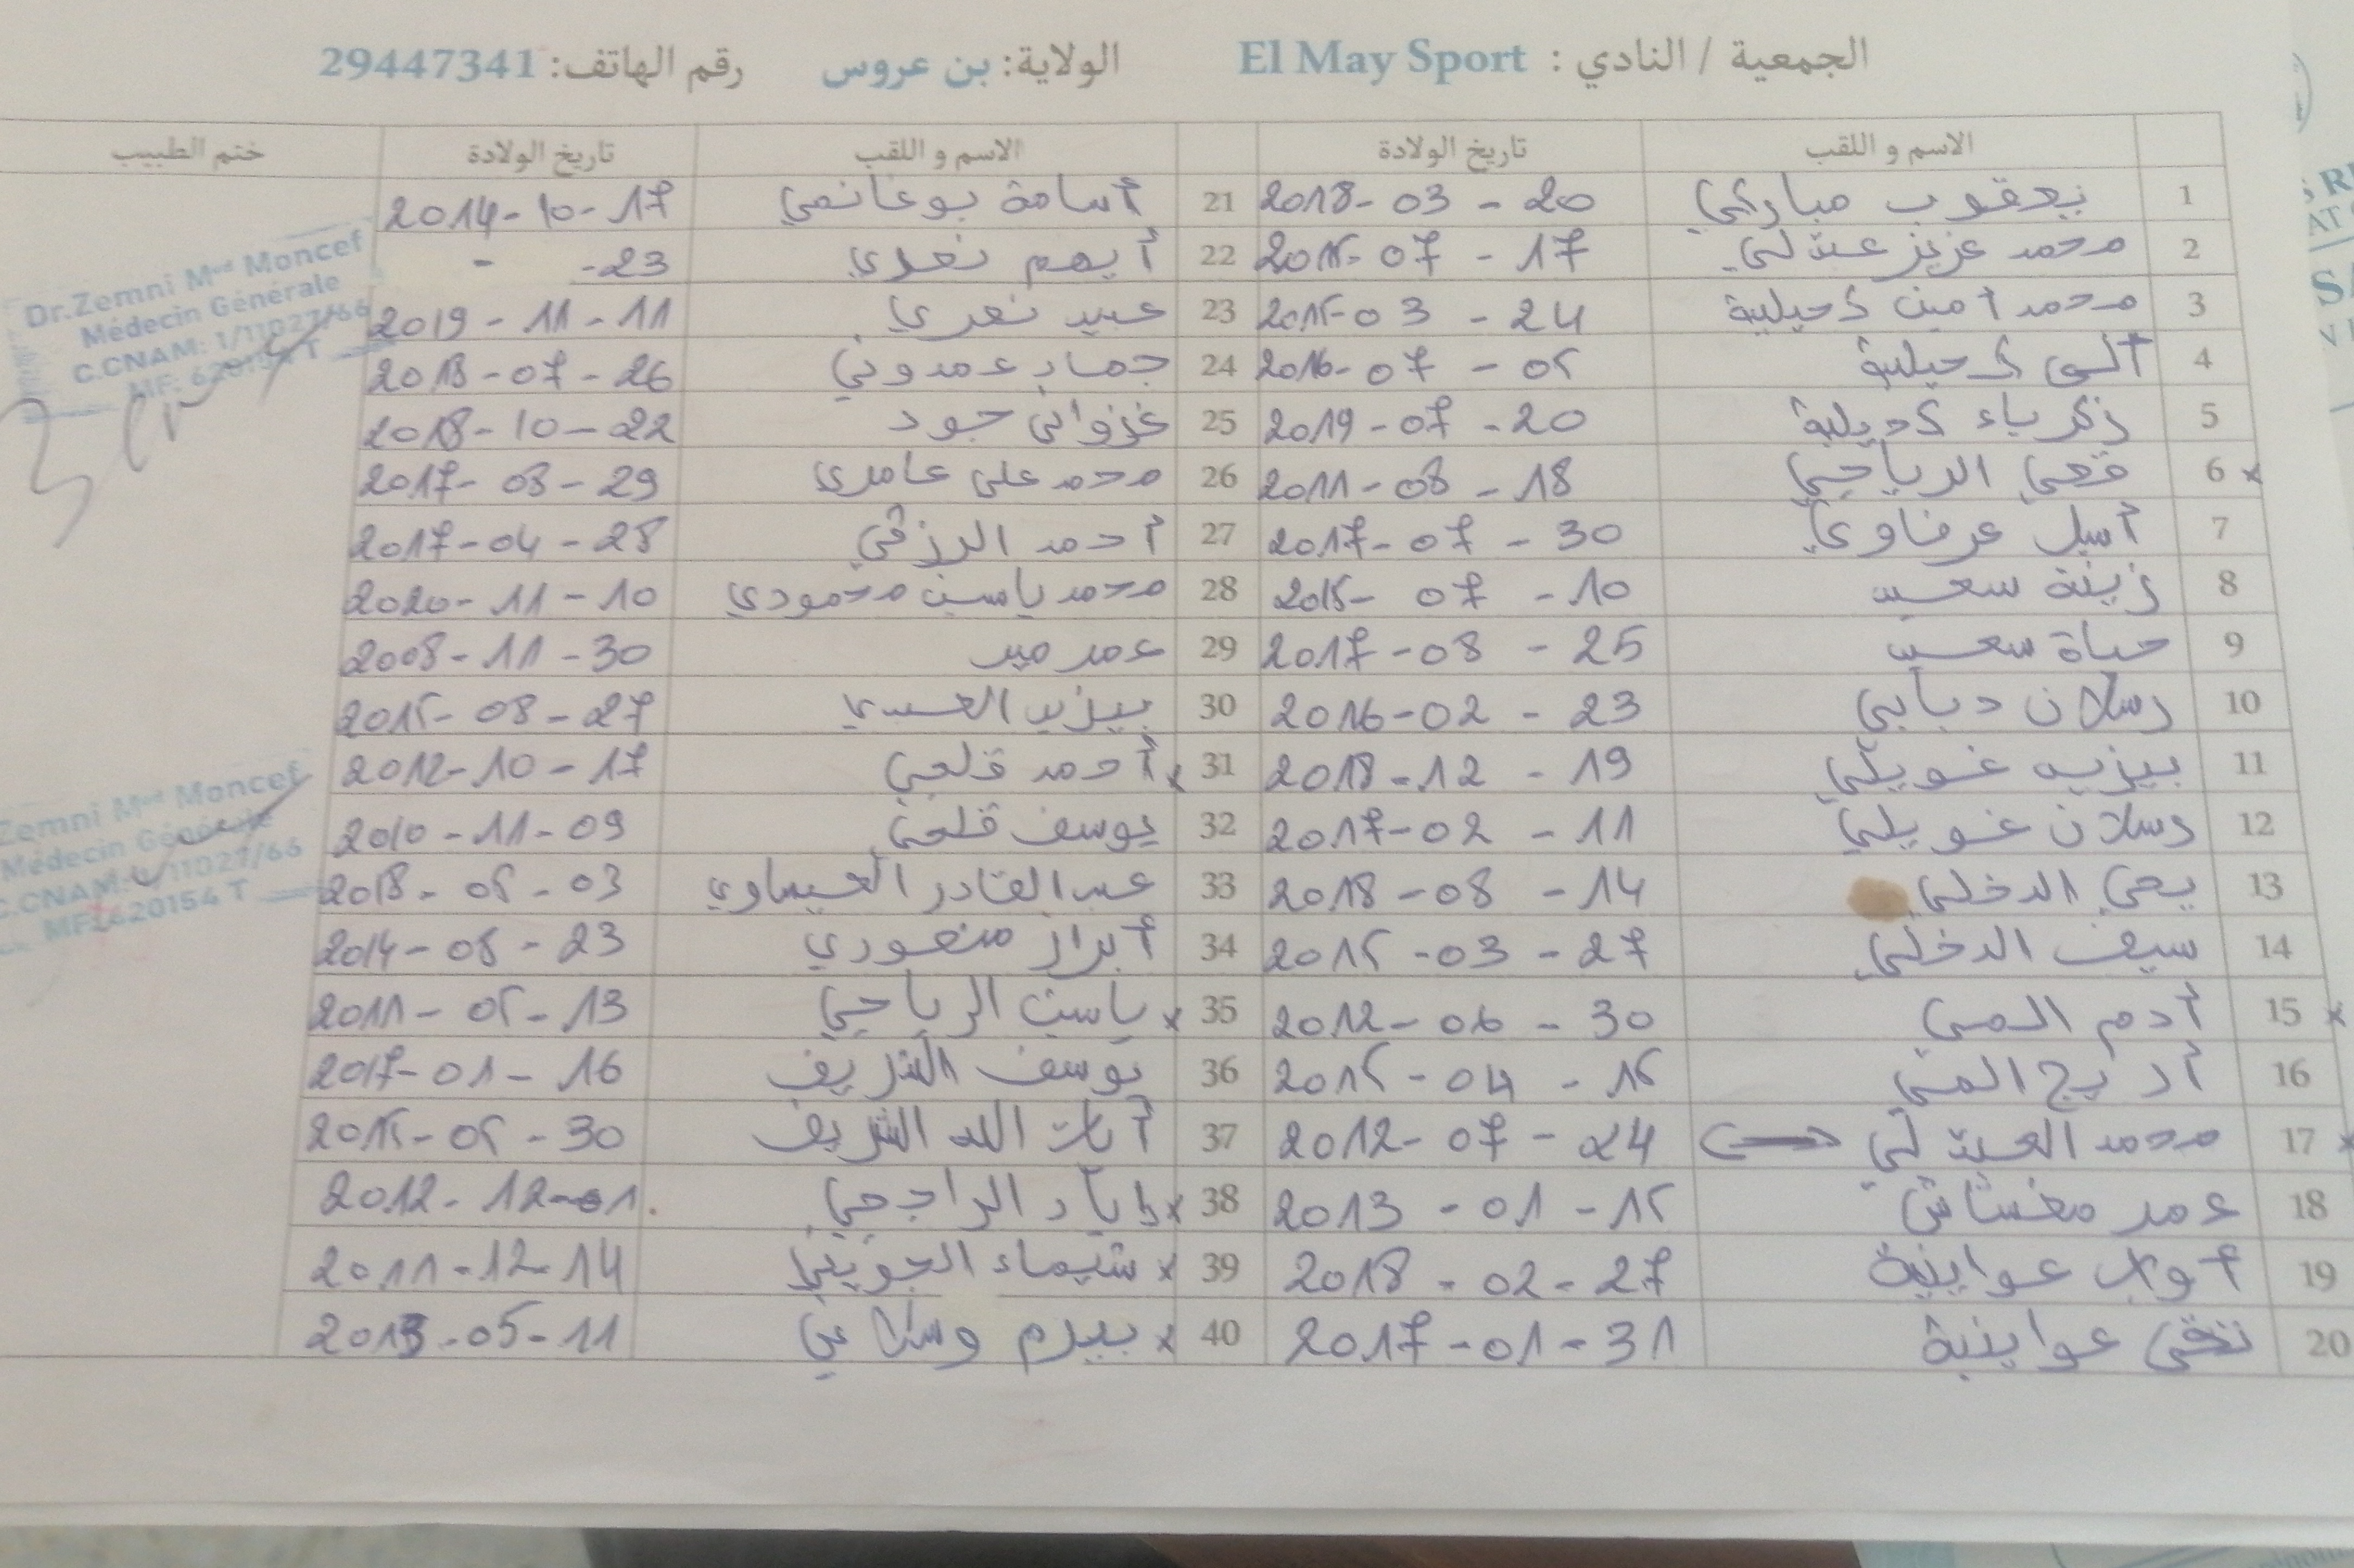 الجمعية / النادي : El May Sport الولاية: بن عروس رقم الهاتف: 29447341
الاسم و اللقب تاريخ الولادة الاسم و اللقب تاريخ الولادة ختم الطبيب
1 يعقوب مباركي 20 - 03 - 2018 21 أسامة بوغانمي 17 - 10 - 2014
2 محمد عزيز عبدلي 17 - 07 - 2015 22 أيهم نصري 23 - -
3 محمد أمين كحيلية 24 - 03 - 2015 23 عبيد نصري 11 - 11 - 2019
4 كحيلية 05 - 07 - 2016 24 عمدوني 26 - 07 - 2018
5 زكرياء كحيلية 20 - 07 - 2019 25 غزواني جود 22 - 10 - 2018
6 x قصي الرياحي 18 - 08 - 2011 26 محمد علي عامري 29 - 08 - 2017
7 أسيل عرفاوي 30 - 07 - 2017 27 أحمد الرزقي 28 - 04 - 2017
8 زينة سعيد 10 - 07 - 2015 28 محمد ياسين محمودي 10 - 11 - 2020
9 حياة سعيد 25 - 08 - 2017 29 عمر 30 - 11 - 2008
10 رسلان دبابي 23 - 02 - 2016 30 بيزيد العبيدي 27 - 08 - 2015
11 بيزيد غويلي 19 - 12 - 2018 31 x أحمد قلعي 17 - 10 - 2012
12 رسلان غويلي 11 - 02 - 2017 32 يوسف قلعي 09 - 11 - 2010
13 يحي الدخلي 14 - 08 - 2018 33 عبد القادر العيساوي 03 - 05 - 2018
14 سيف الدخلي 27 - 03 - 2015 34 أبرار منصوري 23 - 05 - 2014
15 x أدم المي 30 - 06 - 2012 35 x ياسين الرياحي 13 - 05 - 2011
16 أريج المي 15 - 04 - 2015 36 يوسف الشريف 16 - 01 - 2017
17 x محمد العبدلي 24 - 07 - 2012 37 أيات الله الشريف 30 - 05 - 2015
18 عمر مغشاش 15 - 01 - 2013 38 x إياد الراجحي 01 - 12 - 2012
19 أواب عواينية 27 - 02 - 2018 39 x شيماء الجويني 14 - 12 - 2011
20 تقى عواينية 31 - 01 - 2017 40 x بيرم وسلاتي 11 - 05 - 2013
Dr.Zemni Med Moncef
Médecin Générale
C.CNAM: 1/11027/66
MF: 620154 T
Zemni Med Moncef
Médecin Générale
C.CNAM: 1/11027/66
MF: 620154 T